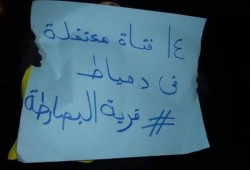 ١٤ فتاة معتقلة
فى دمياط
# قرية البصارطة